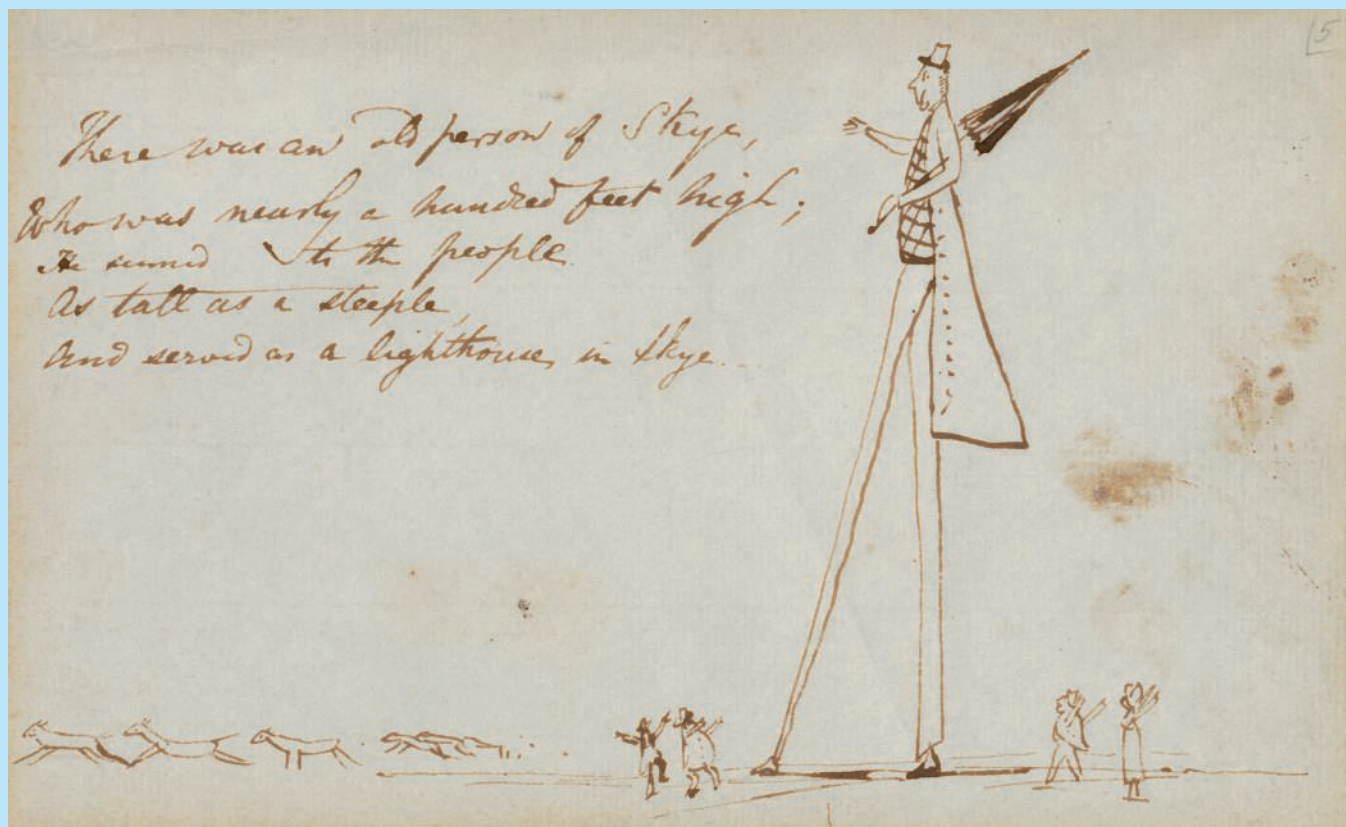 5
There was an old person of Skye,
Who was nearly a hundred feet high;
He seemed to the people
As tall as a steeple,
And served as a lighthouse in Skye.